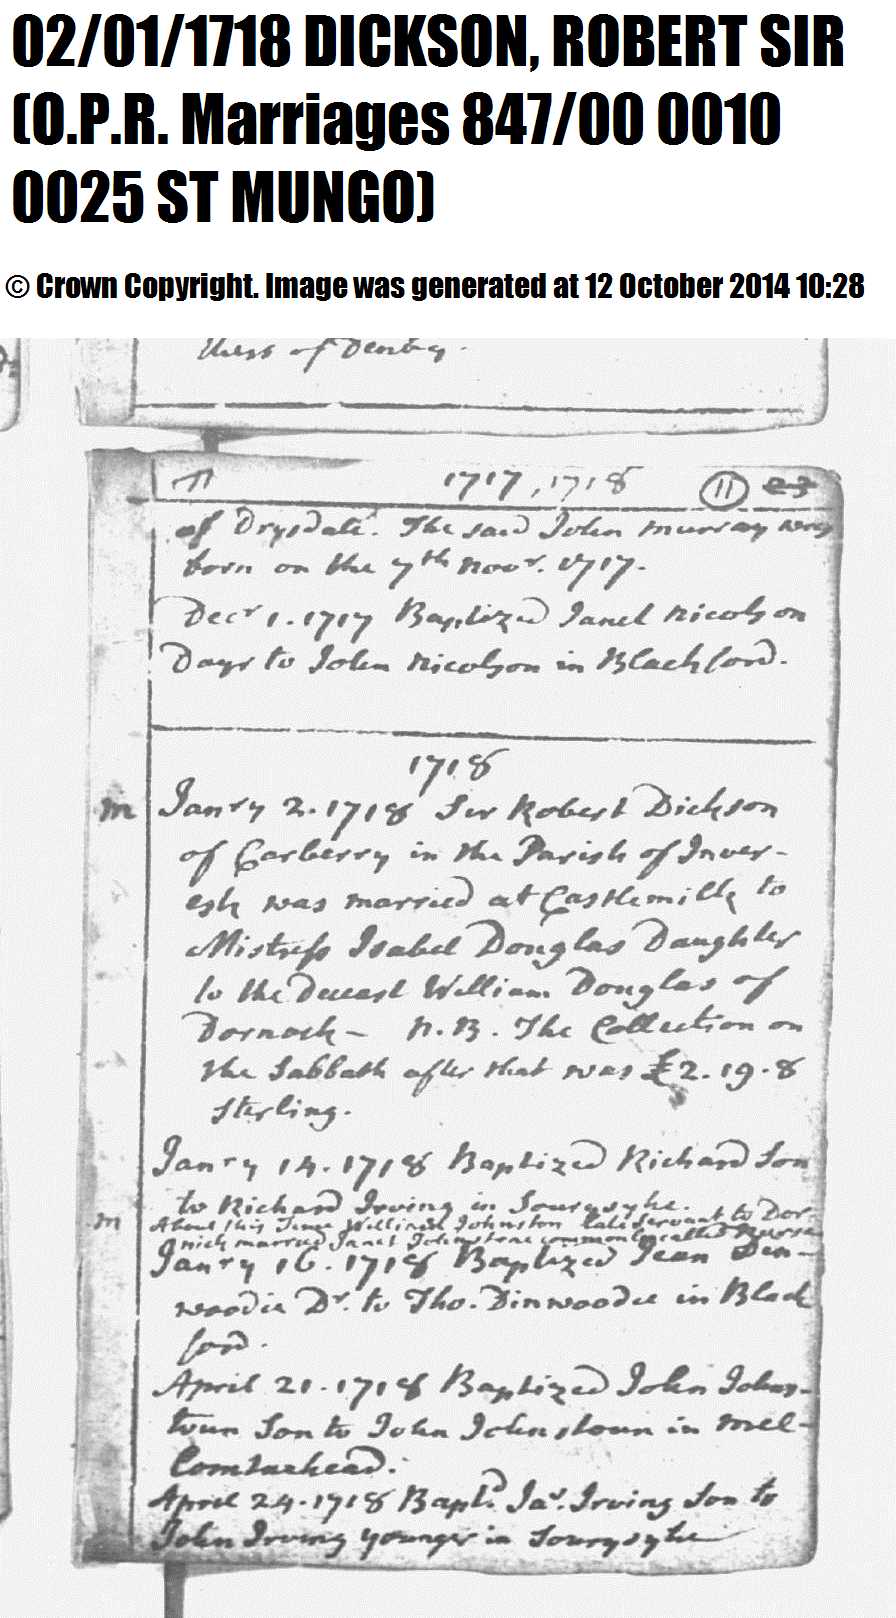 02/01/1718 DICKSON, ROBERT SIR
(O.P.R. Marriages 847/00 0010
0025 ST MUNGO)
© Crown Copyright. Image was generated at 12 October 2014 10:28
of Denby.
11
1717, 1718 11 23
of Drysdale. The said John Murray was
born on the 7th Novr. 1717.
Decr 1. 1717 Baptized Janet Nicolson
Dayr to John Nicolson in Blackford.
1718
m Janry 2. 1718 Sir Robert Dickson
of Carberry in the Parish of Inver-
esk was married at Castlemilk to
Mistress Isabel Douglas Daughter
to the Deceast William Douglas of
Dornock - N.B. The Collection on
the Sabbath after that was £2.19.8
Sterling.
Janry 14. 1718 Baptized Richard Son
to Richard Irving in Sourysyke.
m About this Time William Johnston late Servant to Dor-
nick married Janet Johnstone commonly called Nurse
Janry 16. 1718 Baptized Jean Din-
woodie Dr. to Tho. Dinwoodie in Black
ford.
April 21. 1718 Baptized John Johns-
toun Son to John Johnstoun in
April 24. 1718 Baptd. Jas. Irving Son to
John Irving younger in Sourysyke